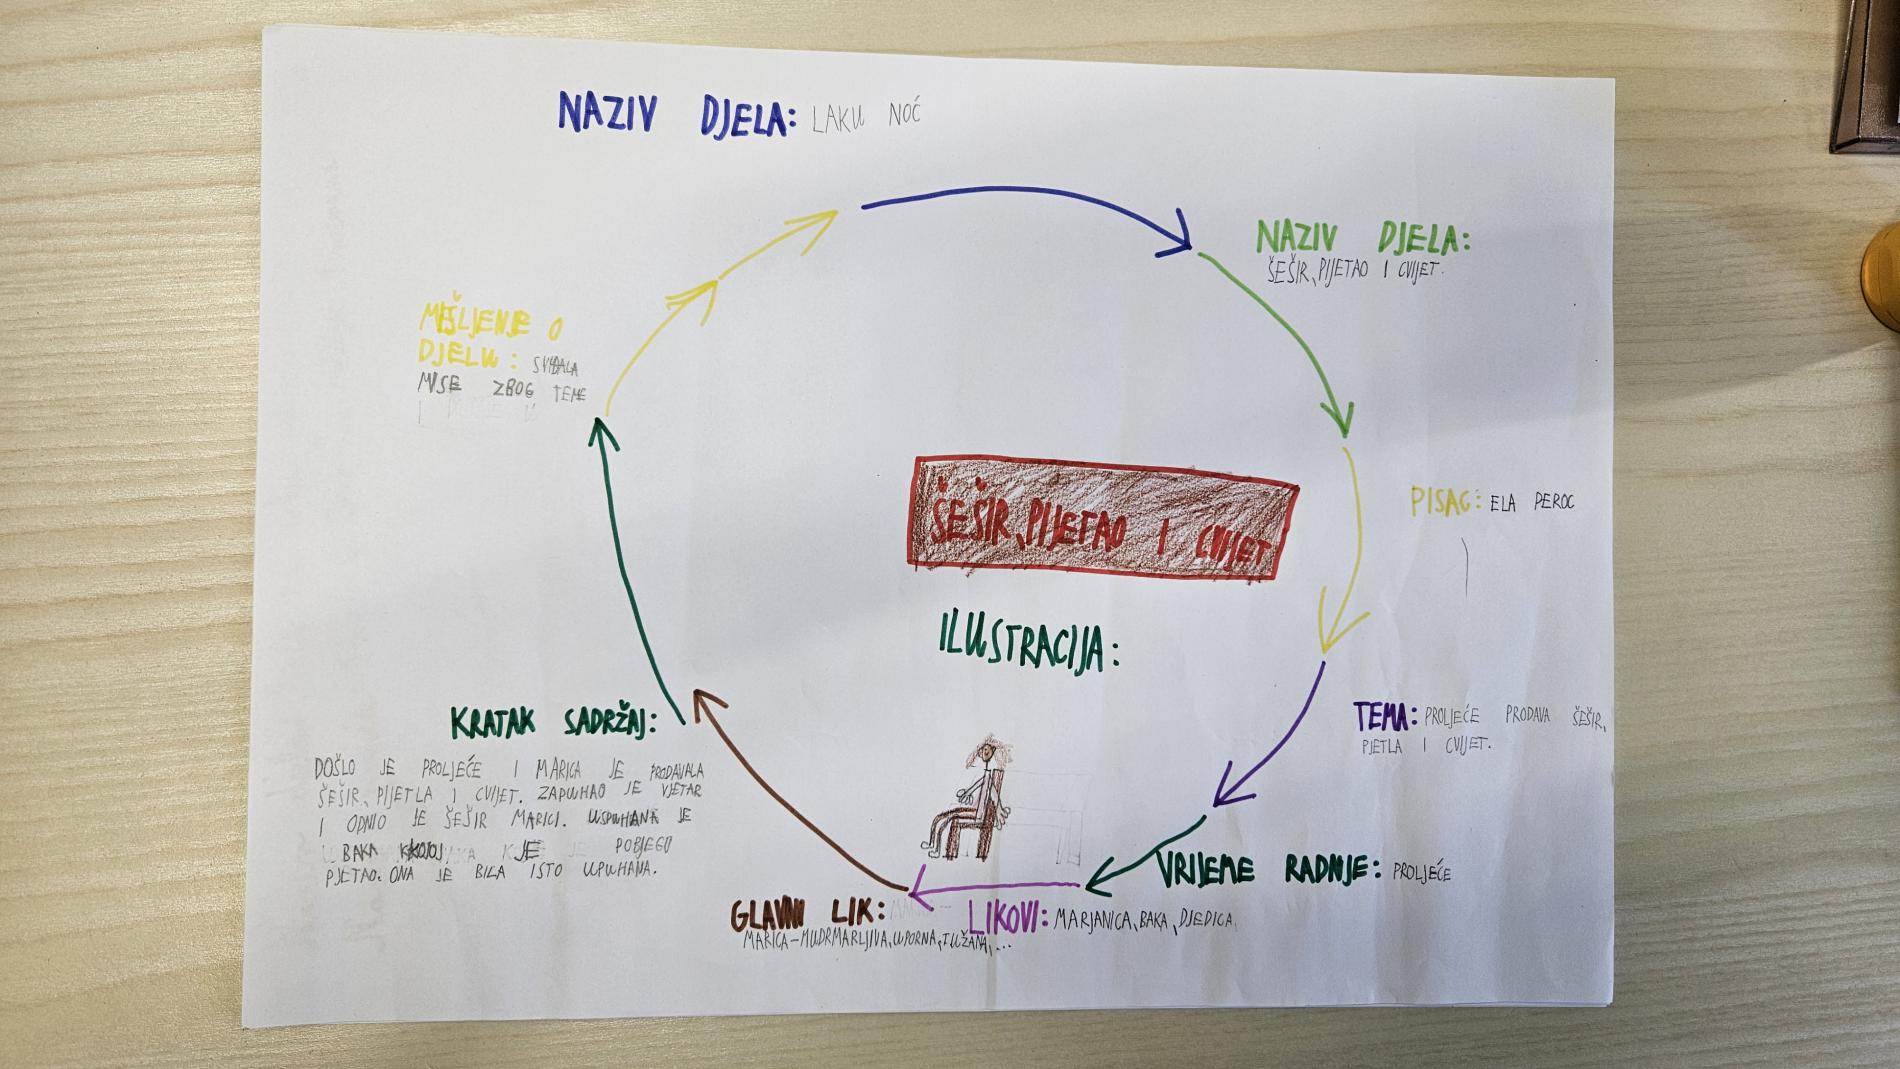 NAZIV DJELA: LAKU NOĆ
NAZIV DJELA:
ŠEŠIR, PIJETAO I CVIJET.
PISAC: ELA PEROC
TEMA: PROLJEĆE PRODAVA ŠEŠIR,
PJETLA I CVIJET.
VRIJEME RADNJE: PROLJEĆE
LIKOVI: MARJANICA, BAKA, DJEDICA
GLAVNI LIK:
MARICA-MUDRMARLJIVA, UPORNA, TUŽANA,...
KRATAK SADRŽAJ:
DOŠLO JE PROLJEĆE I MARICA JE PRODAVALA
ŠEŠIR, PIJETLA I CVIJET. ZAPUHAO JE VJETAR
I ODNIO JE ŠEŠIR MARICI. USPUHANA JE
BAKA JE POBJEGO
PJETAO. ONA JE BILA ISTO UPUHANA.
MIŠLJENJE O
DJELU: SVIĐALA
MI SE ZBOG TEME
ŠEŠIR, PIJETAO I CVIJET
ILUSTRACIJA: